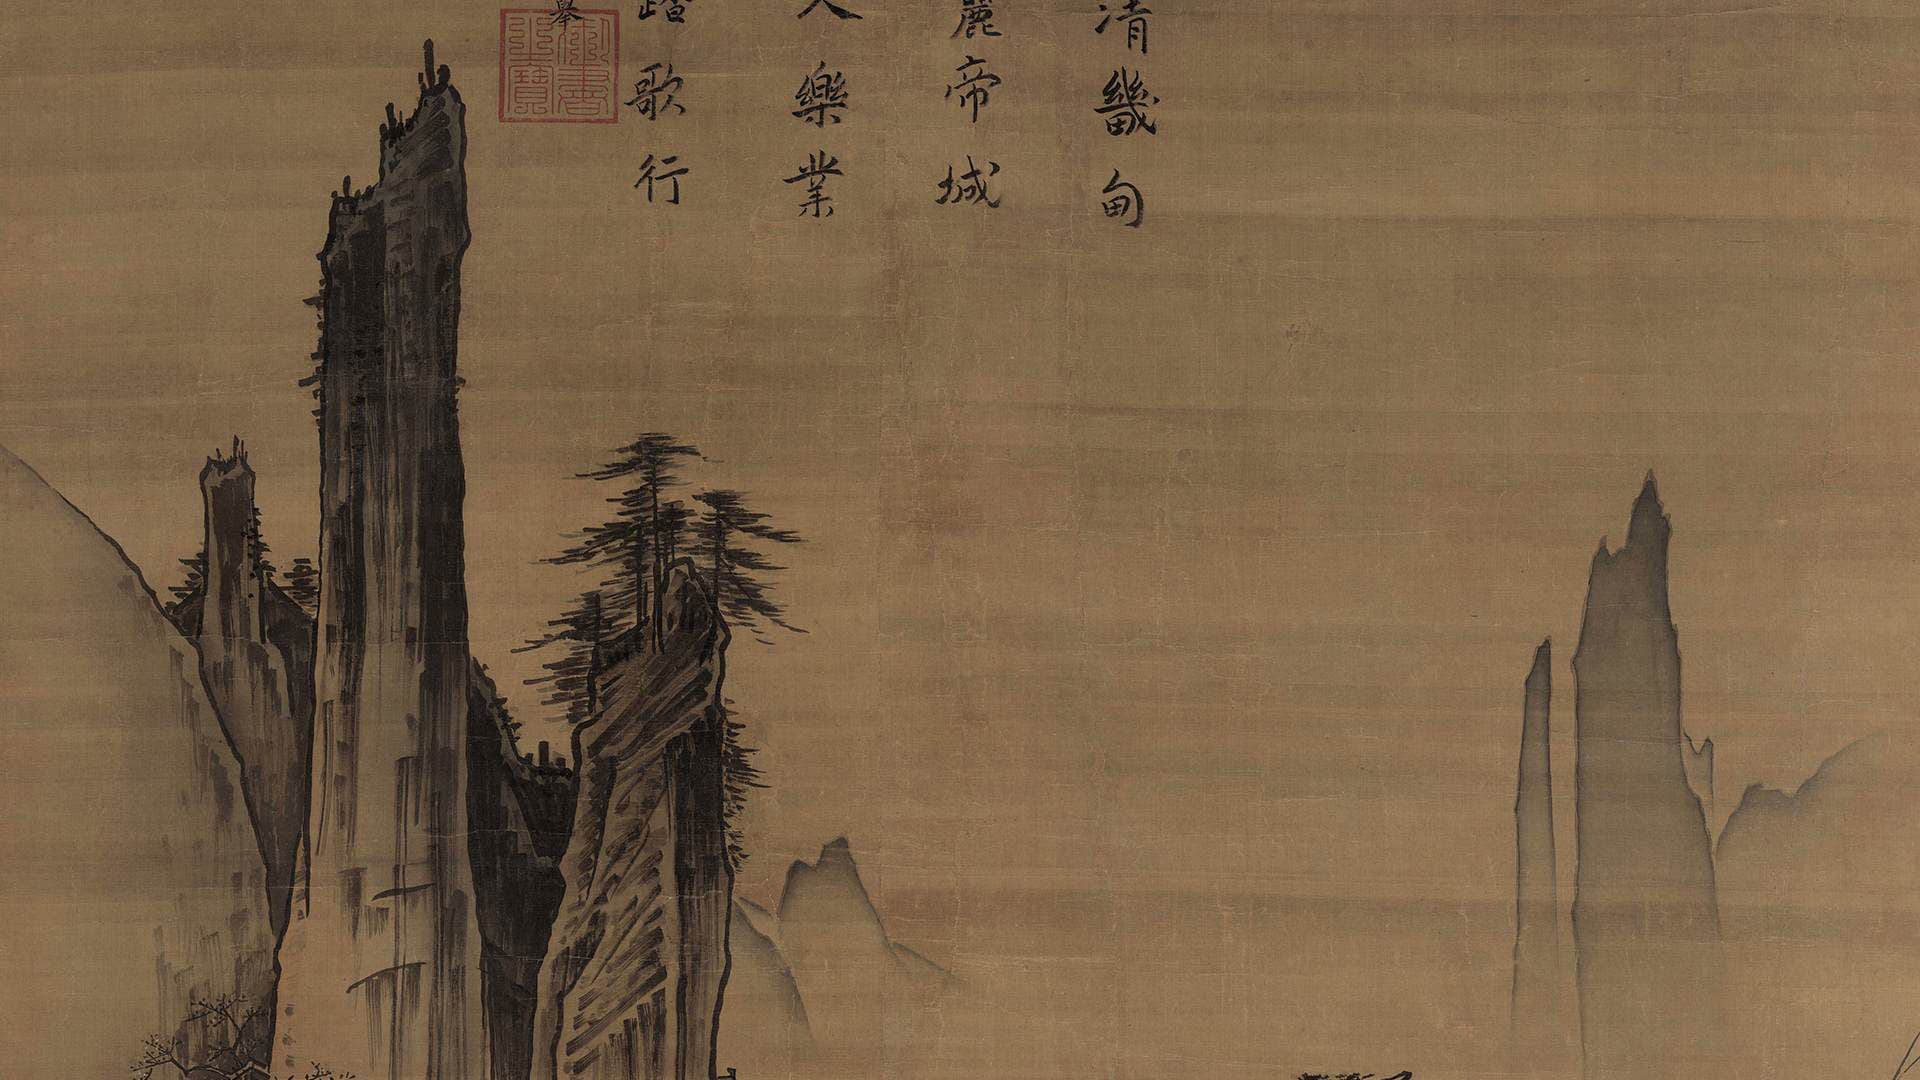 清畿甸
麗帝城
人樂業
踏歌行
舉
御書之寶